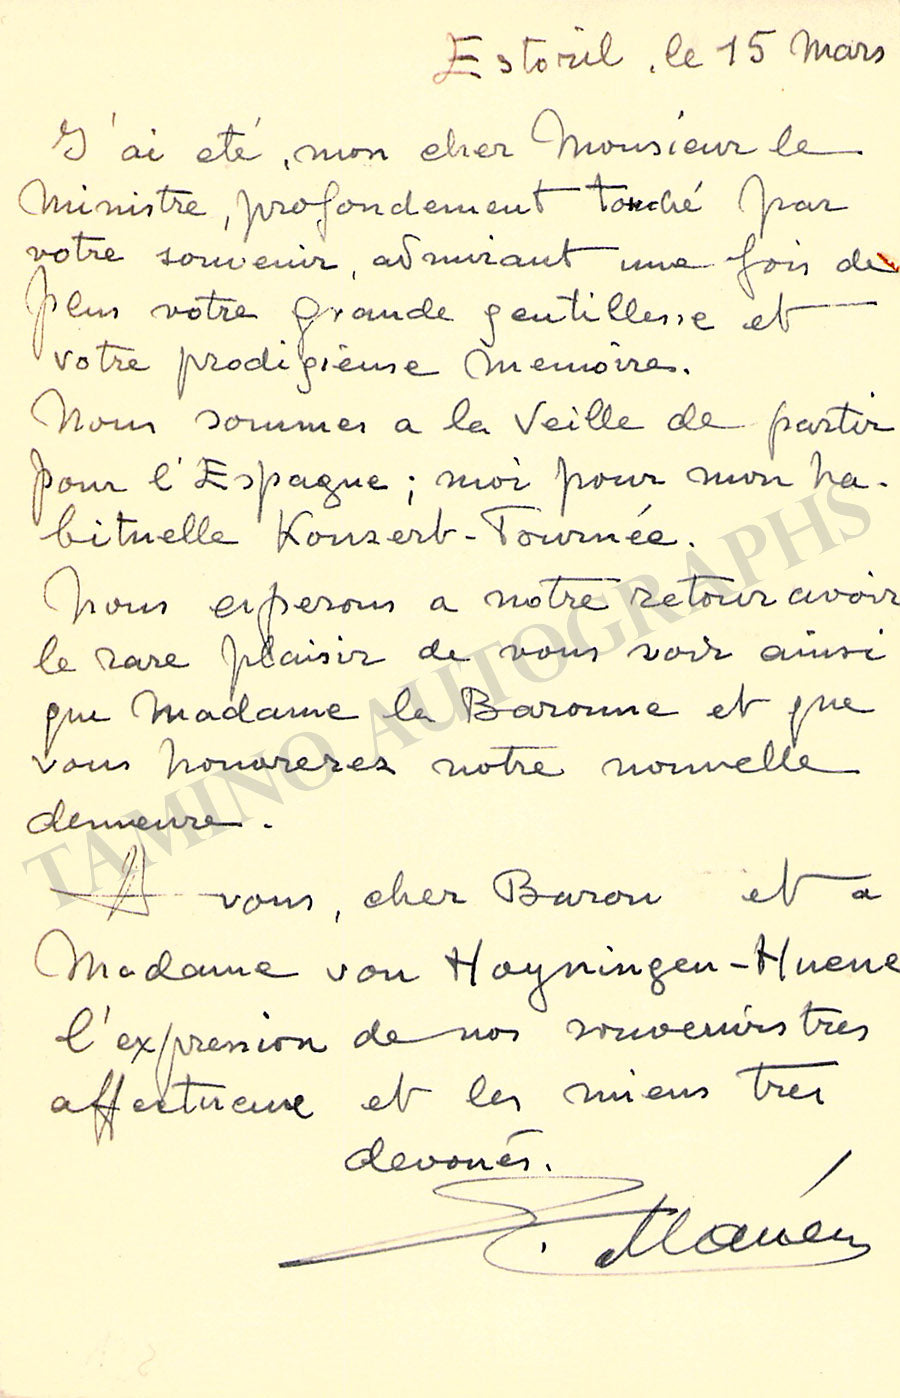 Estoril, le 15 Mars
J'ai eté, mon cher Monsieur le
Ministre, profondement touché par
votre souvenir, admirant une fois de
plus votre grande gentillesse et
votre prodigieuse memoires.
Nous sommes a la veille de partir
pour l'Espagne; moi pour mon ha-
bituelle Konzert-Tournée.
Nous esperons a notre retour avoir
le rare plaisir de vous voir ainsi
que Madame la Baronne et que
vous honorerez notre nouvelle
demeure.
A vous, cher Baron et a
Madame von Hoyningen-Huene
l'expression de nos souvenirs tres
affectueux et les miens tres
devoués.
Manén
TAMINO AUTOGRAPHS